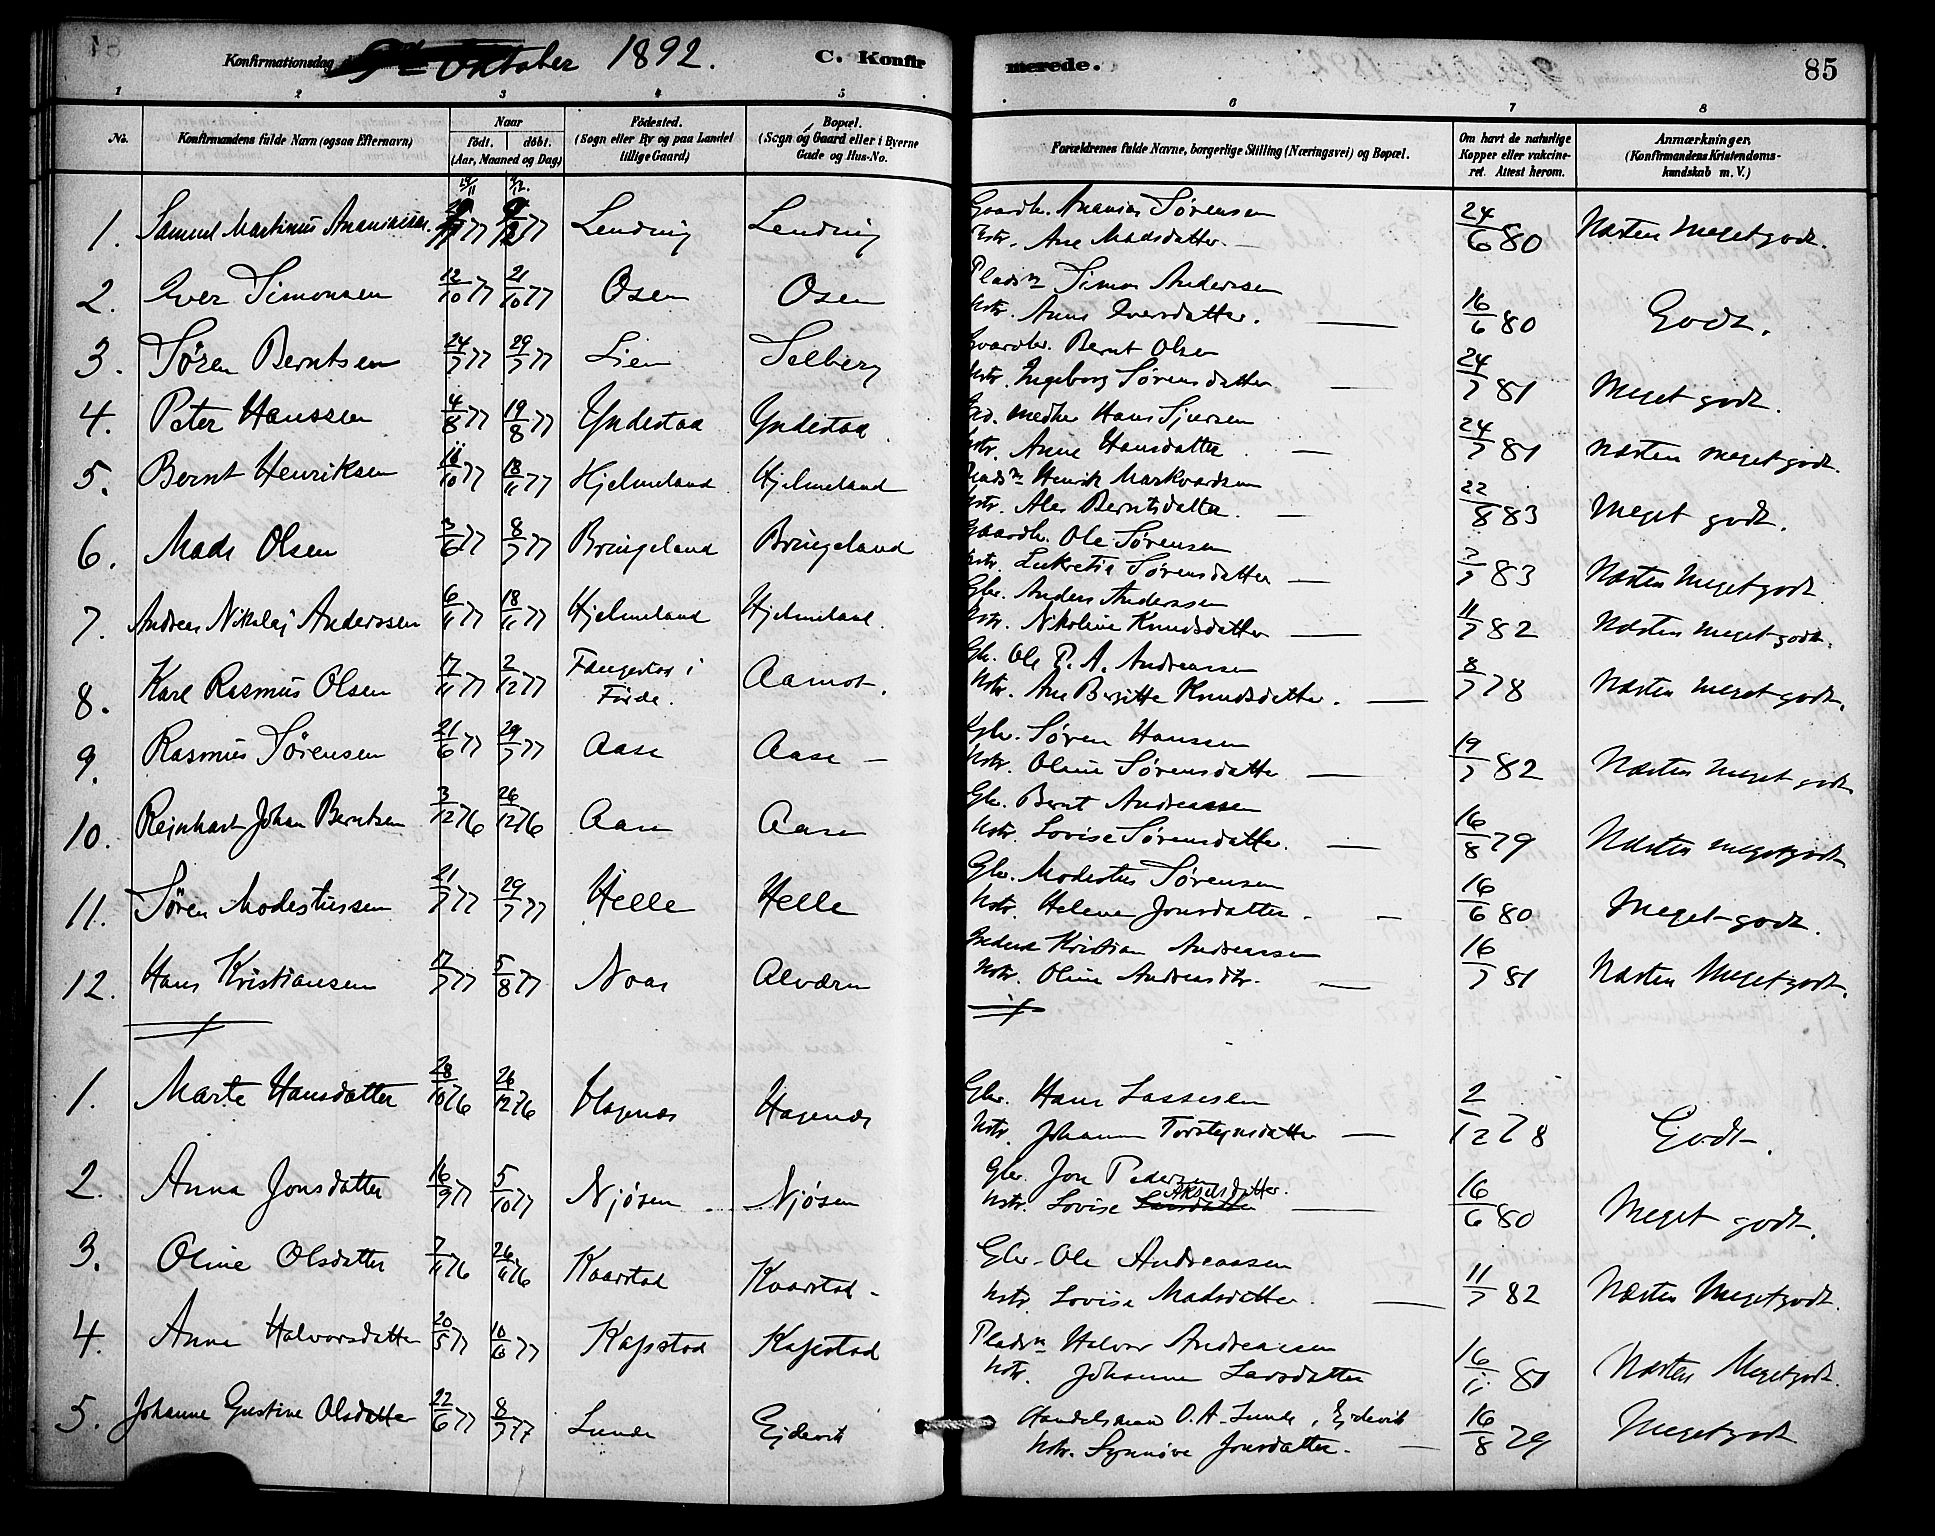 Konfirmationsdag 9de Oktober 1892. C. Konfirmerede. 85
1 2 3 4 5 6 7 8
No. Konfirmandens fulde Navn (ogsaa Efternavn) Naar födt. döbt. (Aar, Maaned og Dag) Födested. (Sogn eller By og paa Landet tillige Gaard) Bopæl. (Sogn og Gaard eller i Byerne Gade og Hus-No. Forældrenes fulde Navne, borgerlige Stilling (Næringsvei) og Bopæl. Om havt de naturlige Kopper eller vakcineret. Attest herom. Anmærkninger. (Konfirmandens Kristendomskundskab m. V.)
1. Samuel Martinus Ananiassen 77 77 Lending Lending Gaardbr. Ananias Sørensen 24/6 80 Næsten meget godt.
Hstr. Ane Madsdatter.
2. Iver Simonsen 12/10 77 21/10 77 Osen Osen Pladsm Simon Anderssen 16/6 80 Godt.
Hstr. Anne Iversdatter.
3. Søren Berntsen 24/7 77 29/7 77 Lien Solberg Gaardbr. Bernt Olsen 24/7 81 Meget godt.
Hstr. Ingeborg Sørensdatter
4. Peter Hanssen 4/8 77 19/8 77 Yndestad Yndestad Hans Sjursen 24/7 81 næsten meget godt.
Hstr. Anne Hansdatter
5. Bernt Henriksen 77 18/11 77 Hjelmeland Hjelmeland Pladsm Henrik Markvardsen 22/8 83 Meget godt.
Hstr. Ales Berntsdatter.
6. Mads Olsen 3/6 77 8/7 77 Bringeland Bringeland Gaardbr. Ole Sørensen 83 Næsten meget godt.
Hstr. Lukretia Sørensdatter
7. Andreas Nikolaj Anderssen 6/11 77 18/11 77 Hjelmeland Hjelmeland. Gbr. Anders Anderssen 11/7 82 Næsten meget godt.
Hstr. Nikoline Knudsdatter
8. Karl Rasmus Olsen 17/11 77 2/12 77 Fangestad i Førde. Aamot. Gbr. Ole P. A. Andreassen 8/7 78 Næsten meget godt.
Hstr. Ane Beritte Knudsdatter.
9. Rasmus Sørensen 21/6 77 29/7 77 Aase Aase Gbr. Søren Hansen 19/7 82 Næsten meget godt
Hstr. Oline Sørensdatter
10. Rejnhart Johan Berntsen 3/12 76 26/12 76 Aase Aase Gbr. Bernt Andreassen 16/8 79 Næsten meget godt
Hstr. Lovise Sørensdatter.
11. Søren Modestussen 21/7 77 29/7 77 Helle Helle Gbr. Modestus Sørensen 16/6 80 Meget godt.
Hstr. Helene Jonsdatter.
12. Hans Kristiansen 17/7 77 5/8 77 Noas Alværn Kristian Andreassen 16/7 81 Næsten Meget godt.
Hstr. Oline Andreasdtr.
1. Marte Hansdatter 28/10 76 26/12 76 Hagenæs Hagenæs Gbr. Hans Lassesen 2/12 78 Godt.
Hstr. Johanne Torstejnsdatter
2. Anna Jonsdatter 16/9 77 5/10 77 Njøsen Njøsen Gbr. Jon Pedersen 16/6 80 Meget godt.
Hstr. Lovise Akselsdatter.
3. Oline Olsdatter 7/11 76 26/11 76 Kvarstad Kvarstad. Gbr. Ole Andreassen 11/7 82 Næsten Meget godt.
Hstr. Lovise Madsdatter.
4. Anne Halvorsdatter 20/5 77 10/6 77 Kapstad Kapstad Pladsm Halvor Andreassen 16/11 80 Næsten Meget godt.
Hstr. Johanne Larsdatter
5. Johanne Gustine Olsdatter 22/6 77 8/7 77 Lunde Ejdevik Handelsmand O. A. Lunde, Ejdevik 16/8 79 Meget godt
Hstr. Synnøve Jonsdatter.